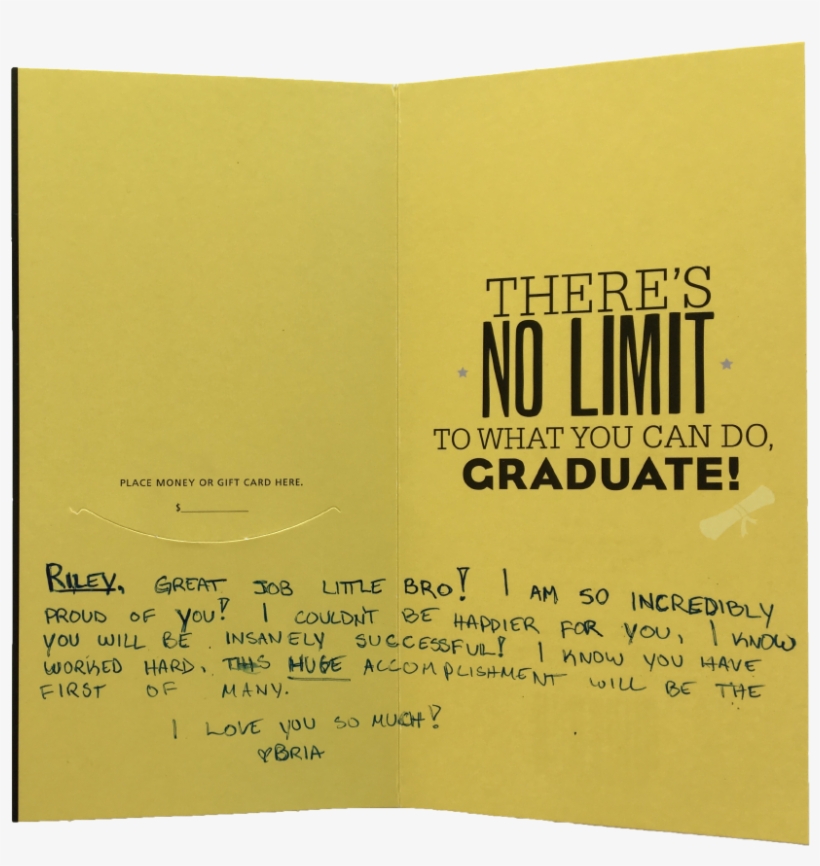 THERE'S
NO LIMIT
TO WHAT YOU CAN DO,
GRADUATE!
PLACE MONEY OR GIFT CARD HERE.
$
RILEY, GREAT JOB LITTLE BRO! I AM SO INCREDIBLY
PROUD OF YOU! I COULDNT BE HAPPIER FOR YOU, I KNOW
YOU WILL BE INSANELY SUCCESSFUL! I KNOW YOU HAVE
WORKED HARD, THIS HUGE ACCOMPLISHMENT WILL BE THE
FIRST OF MANY.
I LOVE YOU SO MUCH!
♡BRIA